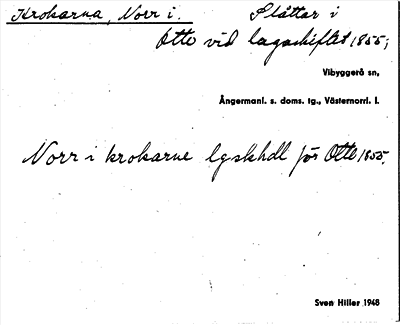 Krokarna, Norr i. Slåttar i
Otte vid lagaskiftet 1855;
Vibyggerå sn,
Ångermanl. s. doms. tg., Västernorrl. l.
Norr i krokarne lgskhdl för Otte 1855.
Sven Hiller 1948